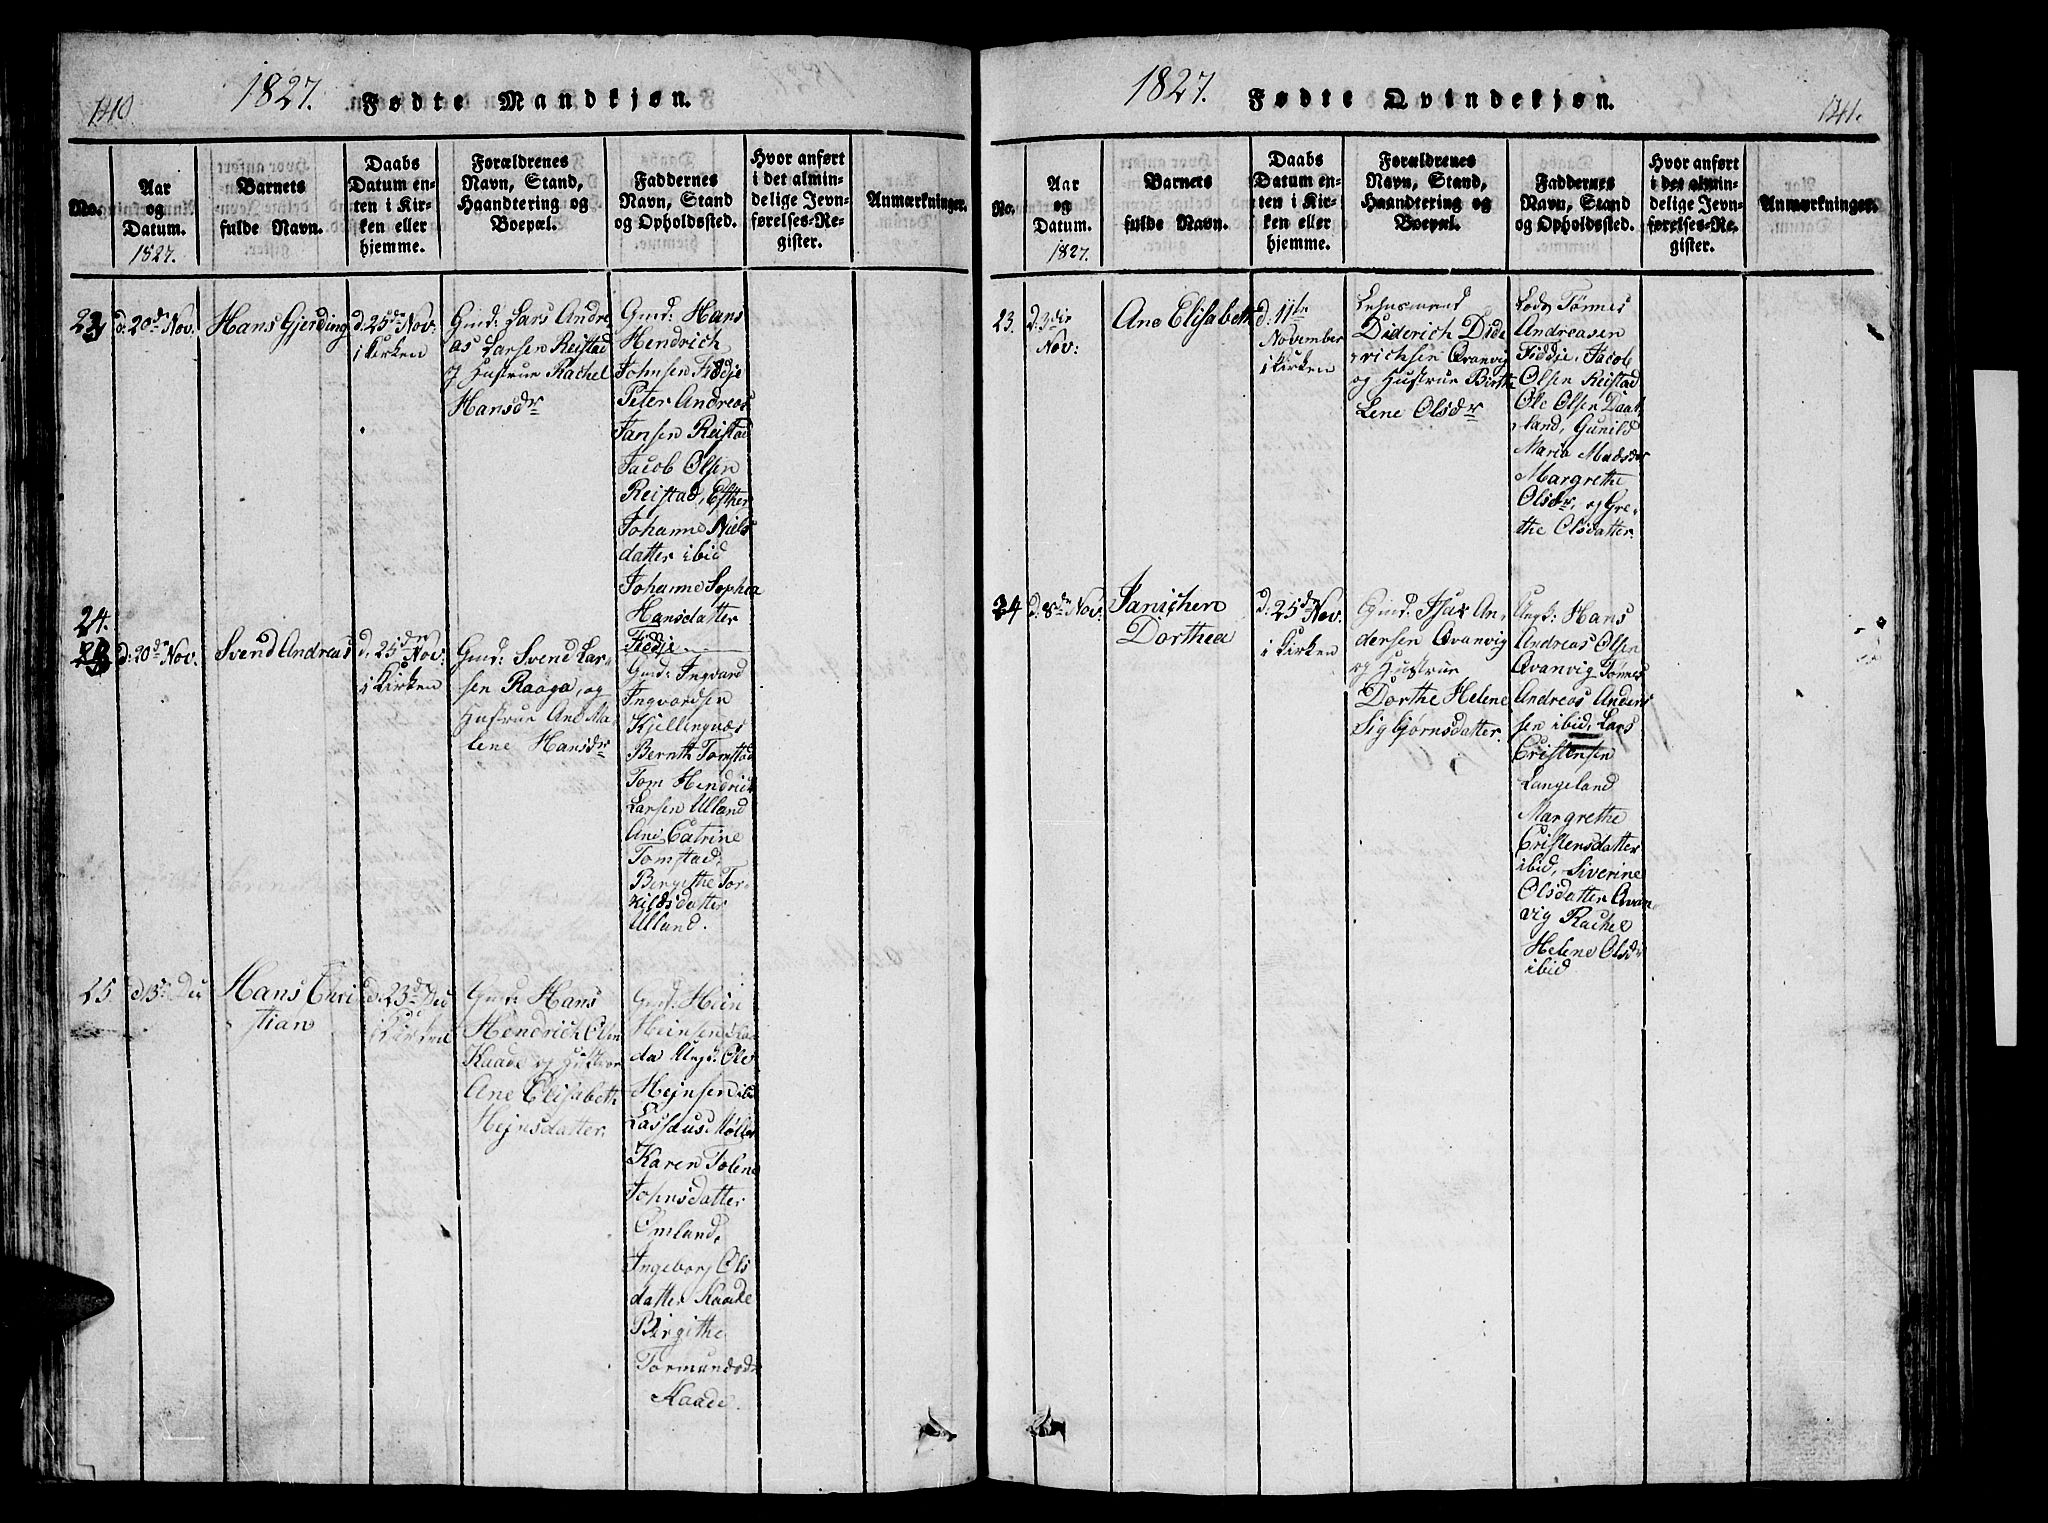 140.
1827. Fødte Mandkjøn.
No.
Aar
og
Datum.
1827.
Barnets
fulde Navn.
Daabs
Datum en-
ten i Kir-
ken eller
hjemme.
Forældrenes
Navn, Stand,
Haandtering og
Boepæl.
Faddernes
Navn, Stand
og Opholdssted.
Hvor anført
i det almin-
delige Jevn-
førelses-Re-
gister.
Anmærkninger.
23
d: 20de Nov.
Hans Gjerding
d: 25de Nov:
i Kirken
Gmd: Lars Andre
as Larsen Reistad
og Hustrue Rachel
Hansdr
Gmd: Hans
Hendrich
Johnsen Fidje
Peter Andreas
Jansen Reistad
Jacob Olsen
Reistad, Esther
Johanne Niels
datter ibid
Johanne Sophia
Hansdatter
Fidje
24.
d: 20de Nov.
Svend Andreas
d. 25de Nov:
i Kirken
Gmd: Svend Lar-
sen Raaga, og
Hustrue Ane Ma-
lene Hansdr
Gmd: Ingvard
Ingvardsen
Kjellingnæs
Bernth Tomstad
Tom Hendrik
Larsen Ulland
Ane Catrine
Tomstad,
Bergithe Tor-
kildsdatter
Ulland.
25
d 13de Dec
Hans Chri
stian
d. 23de Dec
i Kirken
Gmd: Hans
Hendrich Olsen
Kaade og Hustrue
Ane Elisabeth
Hejnsdatter.
Gmd: Hein
Heinsen
da Ungd: Ole
Hejnsen ibd
Lassæus Møller
Karen Tolene
Johnsdatter
Omland,
Ingeborg Ols
datter Kaade
Birgithe
Tormundsdr
Kaade.
1827. Fødte Qvindekjøn.
141.
No.
Aar
og
Datum.
1827.
Barnets
fulde Navn.
Daabs
Datum en-
ten i Kir-
ken eller
hjemme.
Forældrenes
Navn, Stand,
Haandtering og
Boepæl.
Faddernes
Navn, Stand
og Opholdssted.
Hvor anført
i det almin-
delige Jevn-
førelses-Re-
gister.
Anmærkninger.
23.
d: 3die
Nov:
Ane Elisabeth
d: 11te
November
i Kirken
Lehnsmand
Diderich Dide
richsen Qvanvig
og Hustrue Birthe
Lene Olsdr
Lods Tønnes
Andreasen
Fiddje, Jacob
Olsen Reistad
Ole Olsen Daat
land, Gunild
Maria Madsdr
Margrethe
Olsdr, og Gre-
the Olsdatter.
24
d: 8de Nov:
Janichen
Dorthea
d: 25de Nov.
i Kirken
Gmd: Isax An-
dersen Qvanvig
og Hustrue
Dorthe Helene
Sigbjørnsdatter.
Ungk: Hans
Andreas Olsen
Qvanvig Tønnes
Andreas Anders
sen ibid, Lars
Cristensen
Langeland
Margrethe
Cristensdatter
ibid, Siverine
Olsdatter Qvan
vig Rachel
Helene Olsdr
ibid